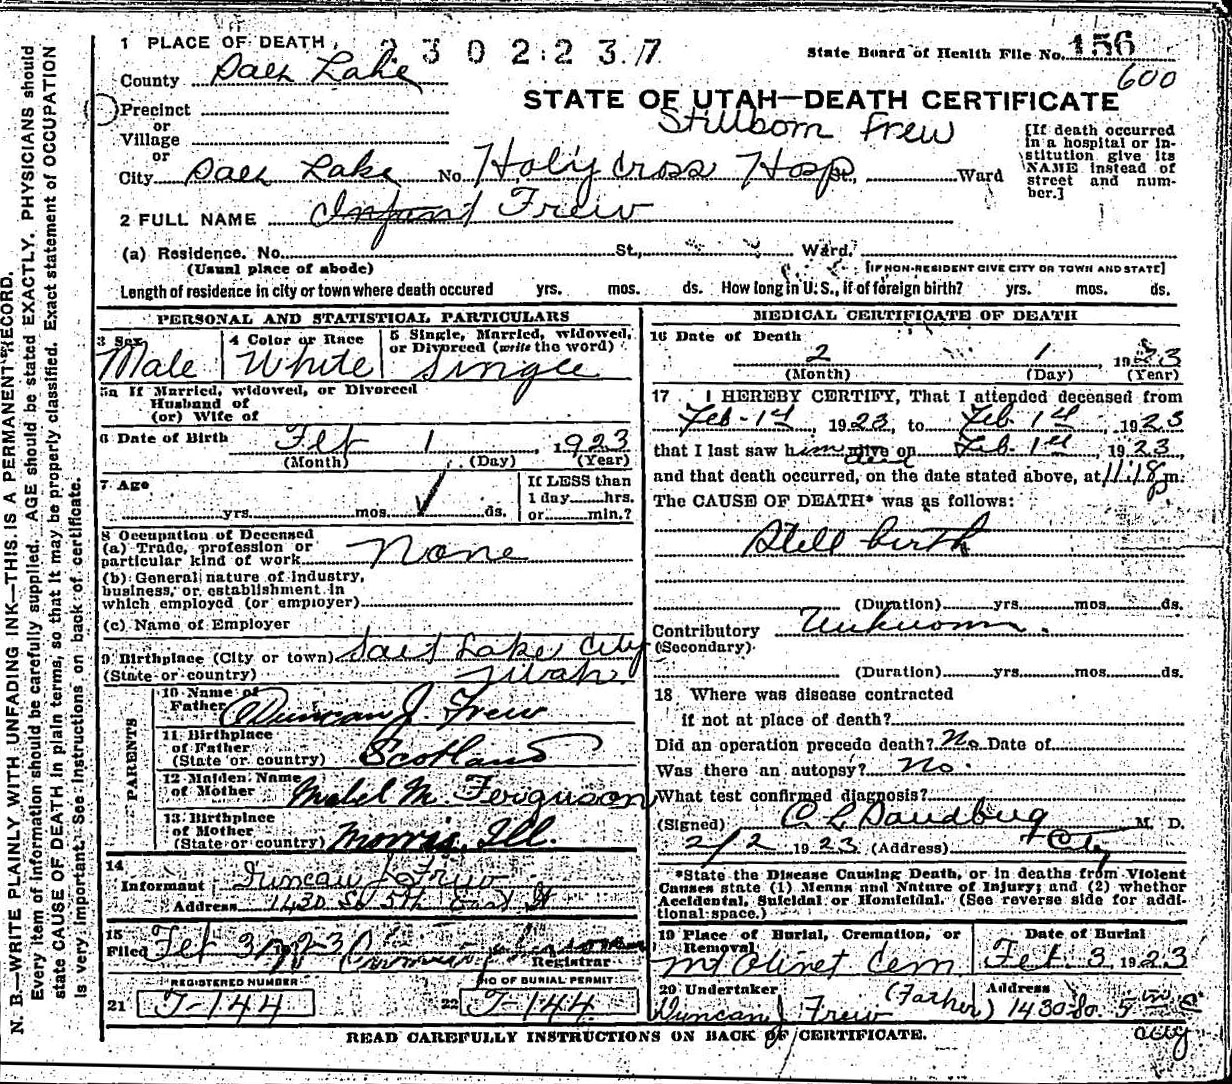 1 PLACE OF DEATH
2302237
State Board of Health File No. 156
600
County Salt Lake
STATE OF UTAH—DEATH CERTIFICATE
Precinct
or
Village
or
Stillborn Frew
[If death occurred in a hospital or institution give its NAME instead of street and number.]
City Salt Lake No. Holy Cross Hosp St., Ward
2 FULL NAME Infant Frew
(a) Residence. No. St., Ward.
(Usual place of abode) [IF NON-RESIDENT GIVE CITY OR TOWN AND STATE]
Length of residence in city or town where death occured yrs. mos. ds. How long in U. S., if of foreign birth? yrs. mos. ds.
PERSONAL AND STATISTICAL PARTICULARS
3 Sex
Male
4 Color or Race
White
5 Single, Married, widowed,
or Divorced (write the word)
Single
5a If Married, widowed, or Divorced
Husband of
(or) Wife of
6 Date of Birth Feb 1, 1923
(Month) (Day) (Year)
7 Age
yrs. mos. ds.
If LESS than
1 day hrs.
or min.?
8 Occupation of Deceased
(a) Trade, profession or
particular kind of work None
(b) General nature of industry,
business, or establishment in
which employed (or employer)
(c) Name of Employer
9 Birthplace (City or town) Salt Lake City
(State or country) Utah
PARENTS
10 Name of
Father Duncan J. Frew
11 Birthplace
of Father
(State or country) Scotland
12 Maiden Name
of Mother Mabel M. Ferguson
13 Birthplace
of Mother
(State or country) Morris, Ill.
14
Informant Duncan J Frew
Address 1430 So 5th East St
15
Filed Feb 3 1923
Registrar
REGISTERED NUMBER
21 J-144
NO OF BURIAL PERMIT
22 J-144
MEDICAL CERTIFICATE OF DEATH
16 Date of Death
2 1 1923
(Month) (Day) (Year)
17 I HEREBY CERTIFY, That I attended deceased from
Feb-1st, 1923, to Feb 1st, 1923
that I last saw him alive on Feb. 1st, 1923,
dead
and that death occurred, on the date stated above, at 11:18 p m.
The CAUSE OF DEATH* was as follows:
Still birth
(Duration) yrs. mos. ds.
Contributory Unknown.
(Secondary)
(Duration) yrs. mos. ds.
18 Where was disease contracted
if not at place of death?
Did an operation precede death? No Date of
Was there an autopsy? No.
What test confirmed diagnosis?
(Signed) M. D.
2/2 1923 (Address) City
*State the Disease Causing Death, or in deaths from Violent
Causes state (1) Menns and Nature of Injury; and (2) whether
Accidental, Suicidal or Homicidal. (See reverse side for addi-
tional space.)
19 Place of Burial, Cremation, or
Removal
Mt Olivet Cem
Date of Burial
Feb. 3 1923
20 Undertaker
(Father)
Duncan J Frew
Address
1430 So. 5th E
City
READ CAREFULLY INSTRUCTIONS ON BACK OF CERTIFICATE.
N. B.—WRITE PLAINLY WITH UNFADING INK—THIS IS A PERMANENT RECORD.
Every item of Information should be carefully supplied. AGE should be stated EXACTLY. PHYSICIANS should
state CAUSE OF DEATH in plain terms, so that it may be properly classified. Exact statement of OCCUPATION
is very important. See instructions on back of certificate.